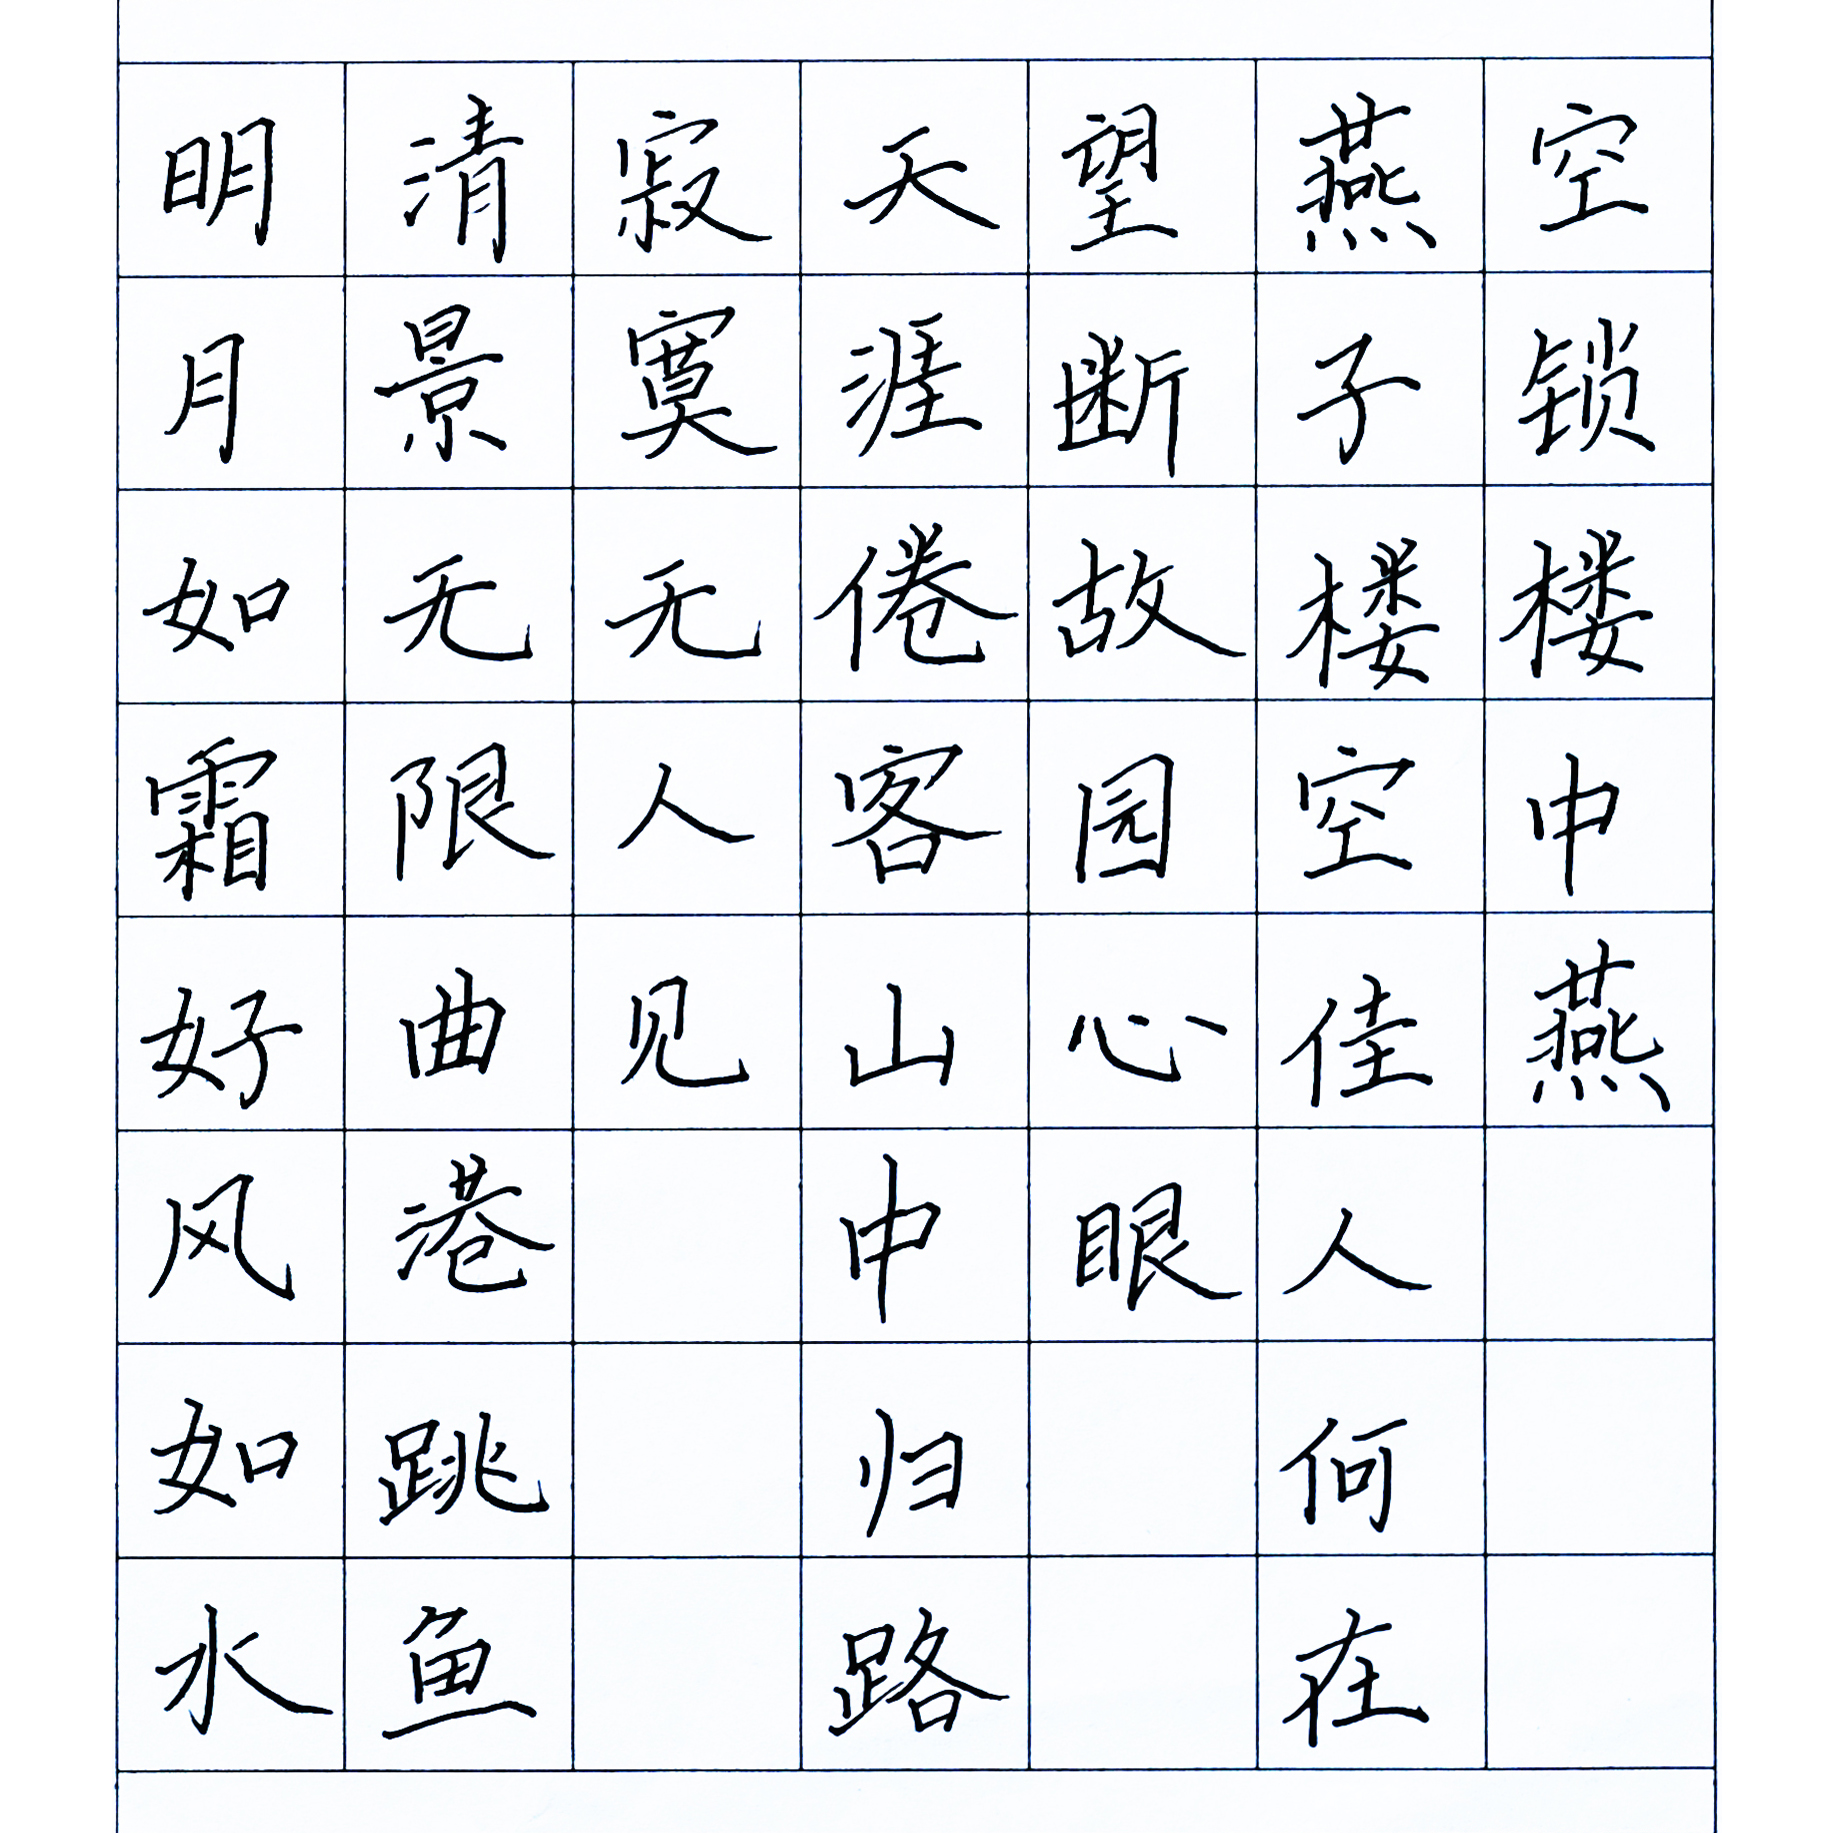 明月如霜好风如水
清景无限曲港跳鱼
寂寞无人见
天涯倦客山中归路
望断故园心眼
燕子楼空佳人何在
空锁楼中燕